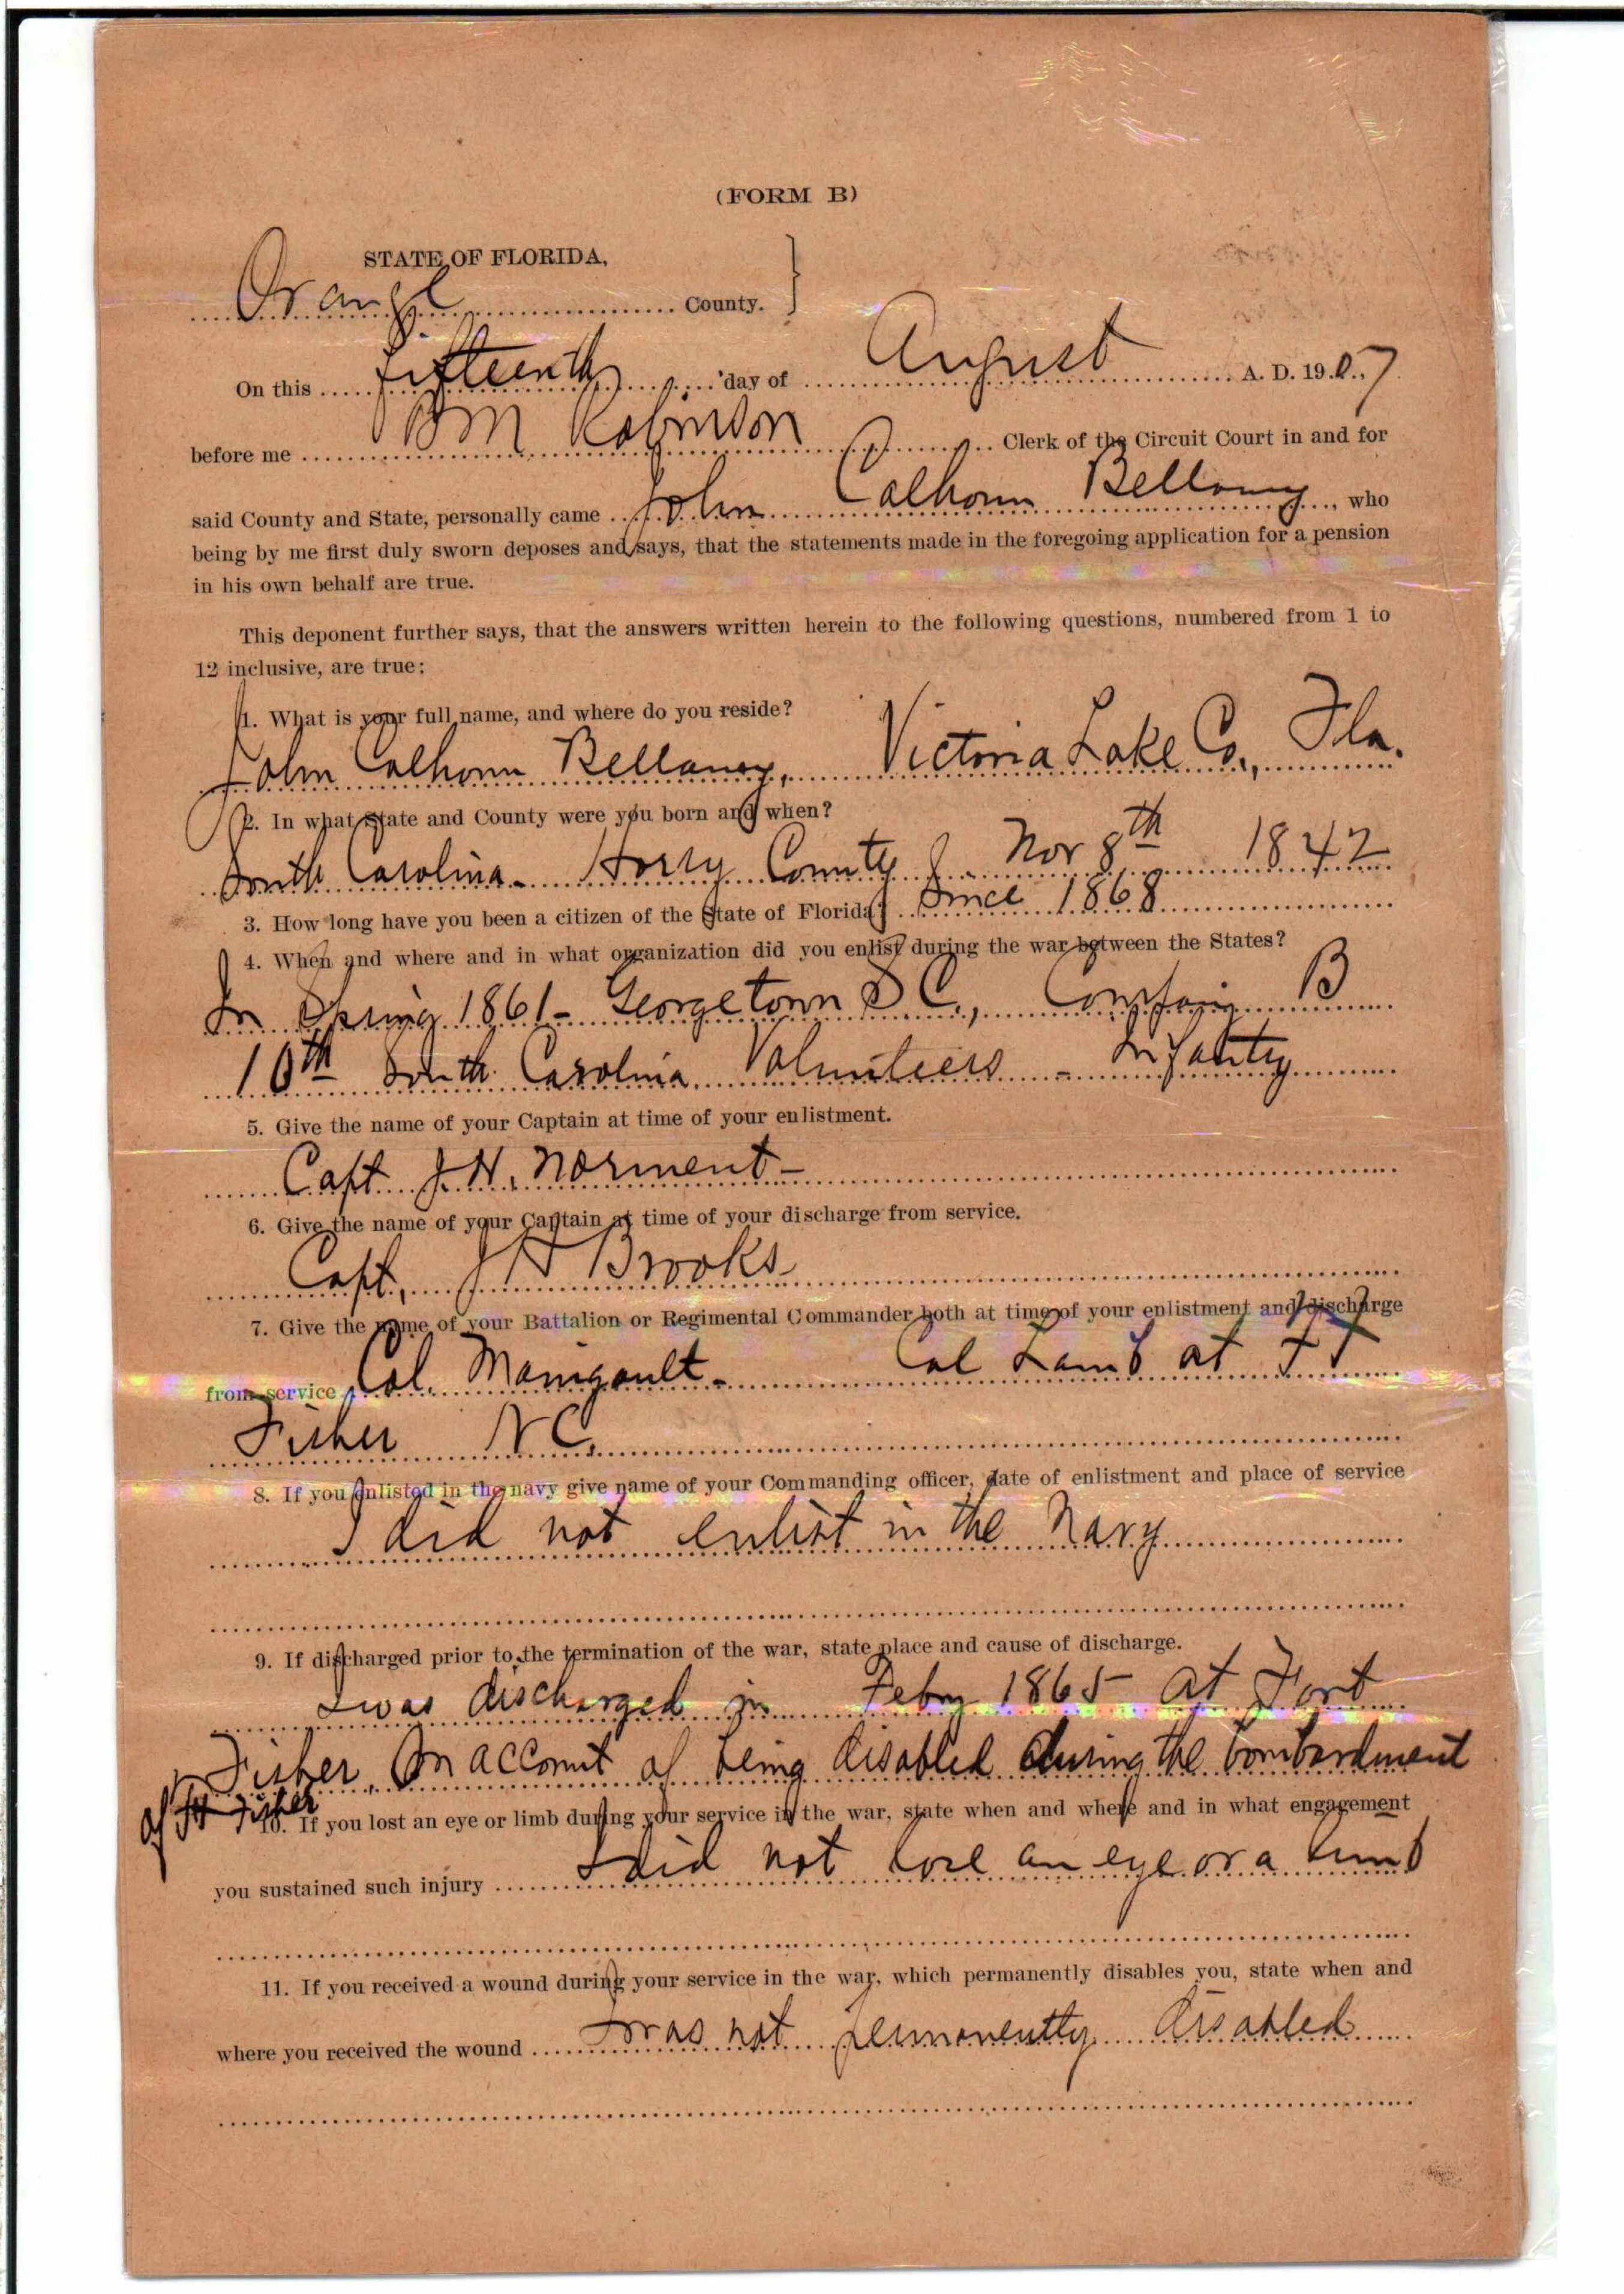 (FORM B)
STATE OF FLORIDA,
Orange County.
On this fifteenth day of August A. D. 1907
before me B M Robinson Clerk of the Circuit Court in and for
said County and State, personally came John Calhoun Bellamy, who
being by me first duly sworn deposes and says, that the statements made in the foregoing application for a pension
in his own behalf are true.
This deponent further says, that the answers written herein to the following questions, numbered from 1 to
12 inclusive, are true:
1. What is your full name, and where do you reside?
John Calhoun Bellamy, Victoria Lake Co., Fla.
2. In what State and County were you born and when?
South Carolina - Horry County Nov 8th 1842
3. How long have you been a citizen of the State of Florida? Since 1868
4. When and where and in what organization did you enlist during the war between the States?
In Spring 1861 - Georgetown S C., Company B
10th South Carolina Volunteers - Infantry
5. Give the name of your Captain at time of your enlistment.
Capt. J. H. Norment -
6. Give the name of your Captain at time of your discharge from service.
Capt., J H Brooks
7. Give the name of your Battalion or Regimental Commander both at time of your enlistment and discharge
from service Col. Manigault - Col Lamb at Ft
Fisher N C.
8. If you enlisted in the navy give name of your Commanding officer, date of enlistment and place of service
I did not enlist in the Navy
9. If discharged prior to the termination of the war, state place and cause of discharge.
I was discharged in Feby 1865 at Fort
Fisher, On account of being disabled during the bombardment
of Ft Fisher
10. If you lost an eye or limb during your service in the war, state when and where and in what engagement
you sustained such injury I did not lose an eye or a limb
11. If you received a wound during your service in the war, which permanently disables you, state when and
where you received the wound I was not permanently disabled